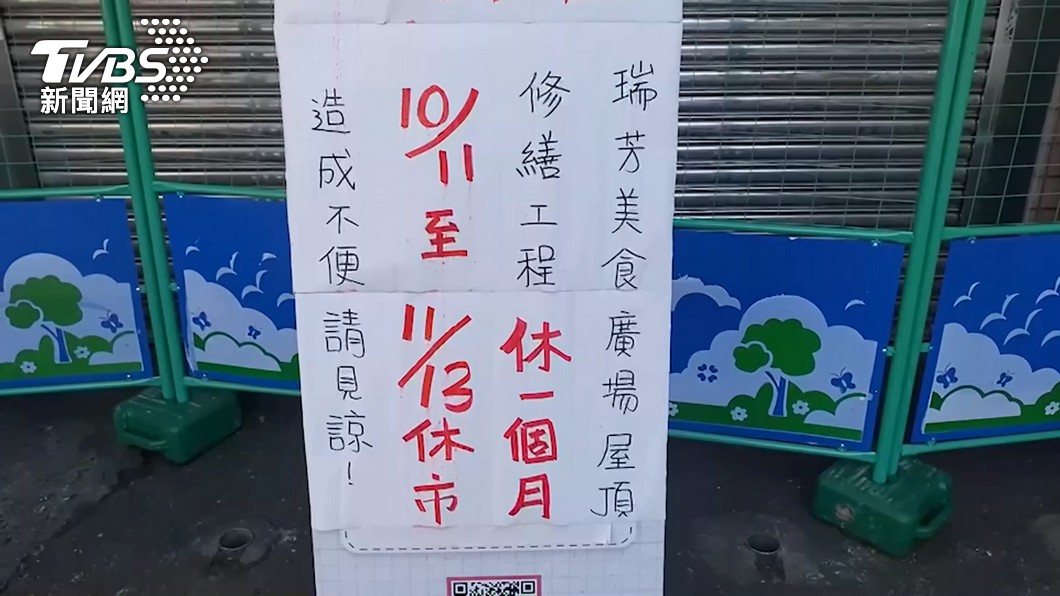 TVBS
新聞網
瑞芳美食廣場屋頂
修繕工程休一個月
10/11至11/13休市
造成不便請見諒！